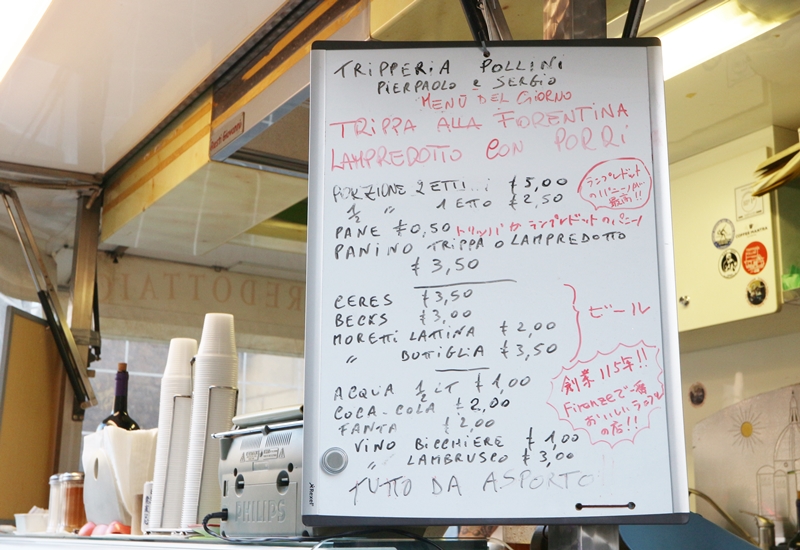 TRIPPERIA POLLINI
PIERPAOLO e SERGIO
MENÙ DEL GIORNO
TRIPPA ALLA FIORENTINA
LAMPREDOTTO CON PORRI
PORZIONE 2 ETTI...i € 5,00
1/2 " 1 ETTO € 2,50
ランプレドット
のパニーノが
最高!!
PANE €0,50 トリッパ か ランプレドットのパニーノ
PANINO TRIPPA O LAMPREDOTTO
€ 3,50
CERES €3,50
BECKS €3,00
MORETTI LATTINA € 2,00
" BOTTIGLIA € 3,50
ビール
ACQUA 1/2 LIT € 1,00
COCA-COLA € 2,00
FANTA € 2,00
VINO BICCHIERE € 1,00
" LAMBRUSCO € 3,00
TUTTO DA ASPORTO
創業115年!!
Firenzeで一番
おいしいランプレ
の店!!
REDOTTAIO
PHILIPS